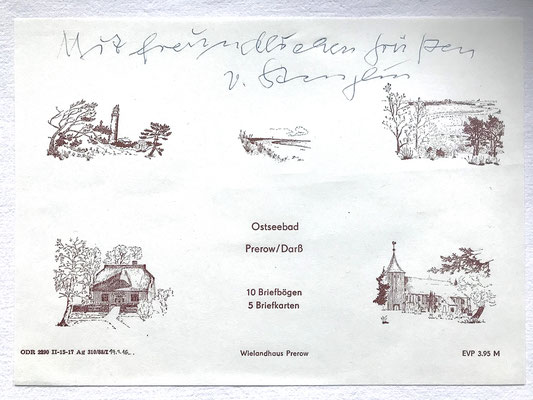 Mit freundlichen Grüßen
v.
Ostseebad
Prerow/Darß
10 Briefbögen
5 Briefkarten
ODR 2290 II-15-17 Ag 310/88/I
Wielandhaus Prerow
EVP 3.95 M